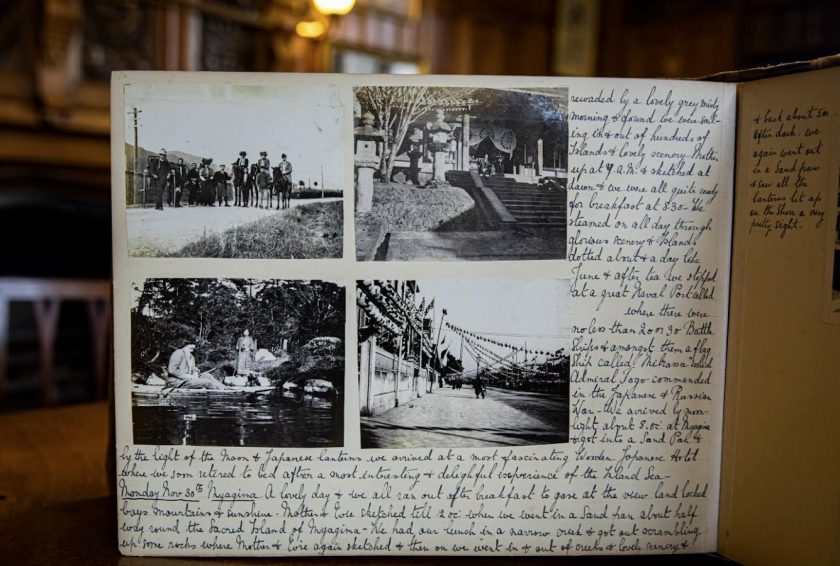 rewaded by a lovely grey misty
morning & found we were sail-
ing in & out of hundreds of
Islands & lovely scenery - Mother
up at 7 A.M. & sketched at
dawn & we were all quite ready
for breakfast at 8.30 - We
steamed on all day through
glorious scenery & Islands
dotted about & a day like
June & after tea we stopped
at a great Naval Port called
where there were
no less than 20 or 30 Battle
Ships & amongst them a flag
Ship called Mikawa which
Admiral Togo commanded
in the Japanese & Russian
War - We arrived by moon-
light about 8.oc. at Myagima
& got into a Sand Pan &
by the light of the Moon & Japanese lanterns we arrived at a most fascinating Wooden Japanese Hotel
where we soon retired to bed after a most interesting & delighful experience of the Inland Sea -
Monday Nov 30th Myagima. A lovely day & we all ran out after breakfast to gaze at the view. land locked
bays mountains & sunshine - Mother & Evie sketched till 12 oc: when we went in a Sand pan about half
way round the Sacred Island of Myagima - We had our lunch in a narrow creek & got out scrambling
up some rocks where Mother & Evie again sketched & then on we went in & out of creeks & lovely scenery &
& back about 5.30
after dark. we
again went out
in a Sand pan
& saw all the
lanterns lit up
on the shore a very
pretty sight.